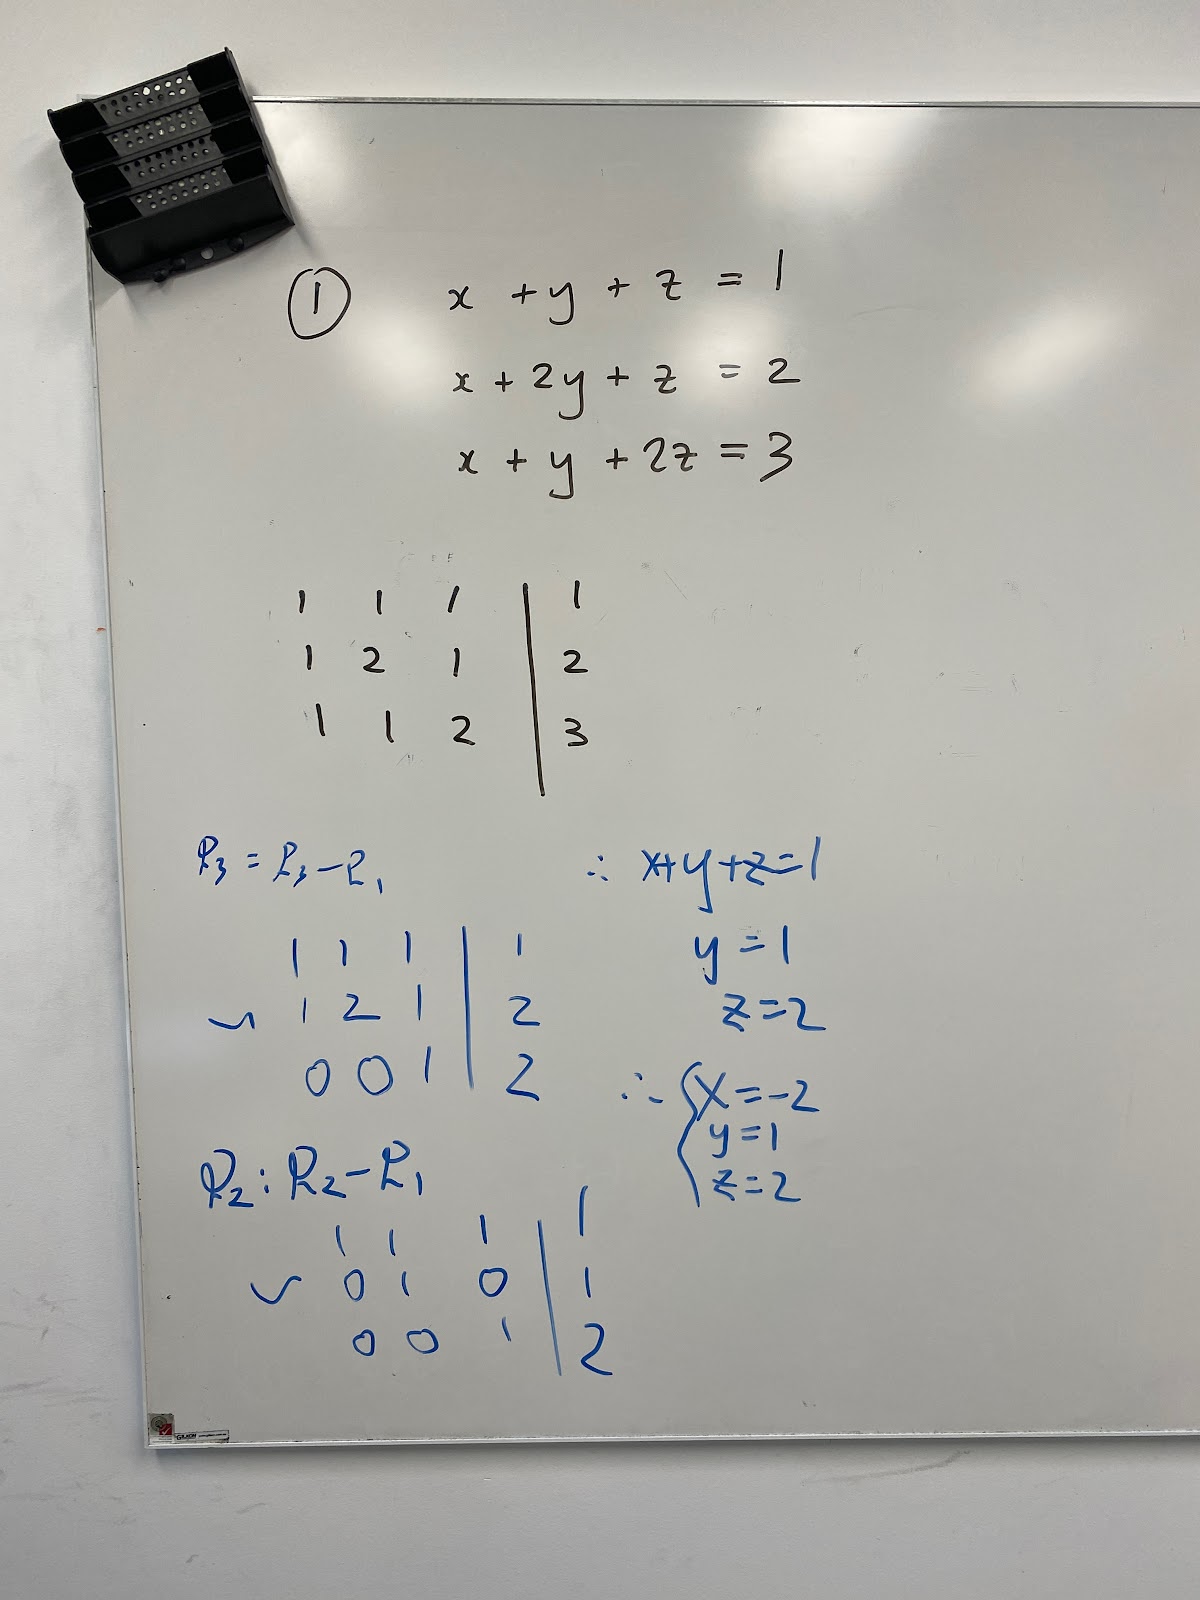 ① x + y + z = 1
x + 2y + z = 2
x + y + 2z = 3
1 1 1 | 1
1 2 1 | 2
1 1 2 | 3
R₃ = R₃ - R₁
1 1 1 | 1
~ 1 2 1 | 2
0 0 1 | 2
R₂ : R₂ - R₁
1 1 1 | 1
~ 0 1 0 | 1
0 0 1 | 2
∴ x + y + z = 1
y = 1
z = 2
∴ { x = -2
y = 1
z = 2